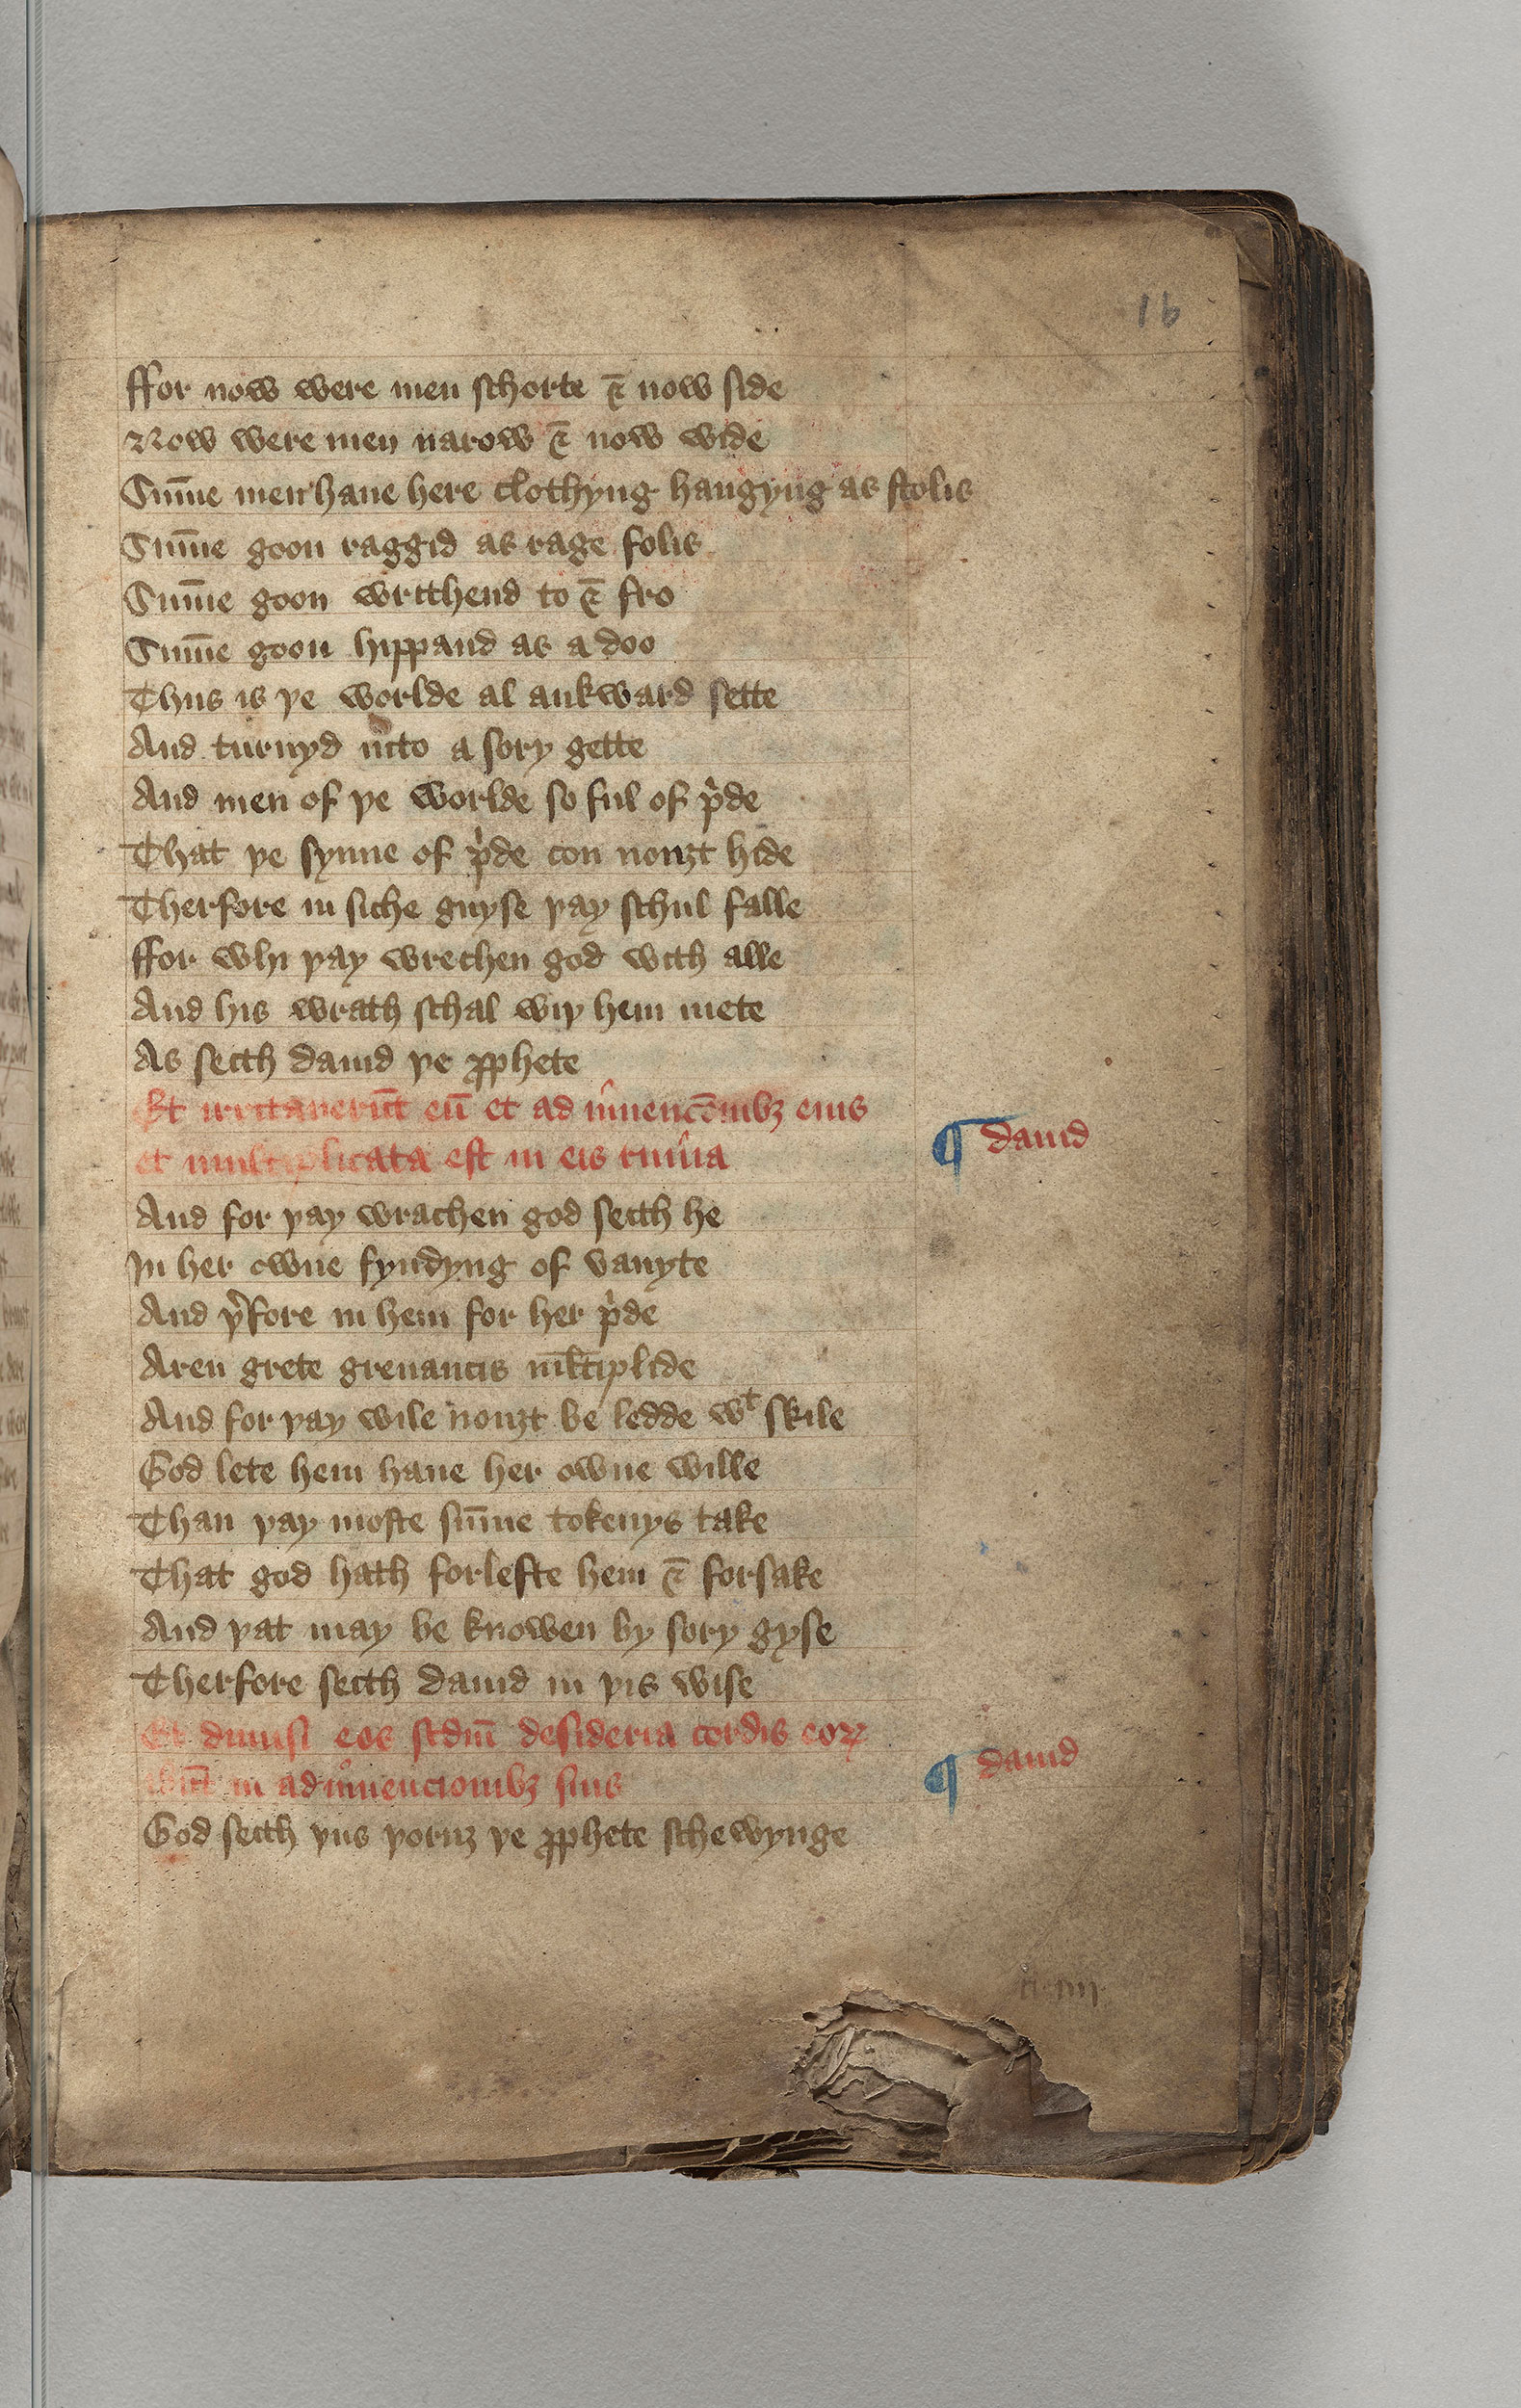 16
ffor now were men schorte & now side
Now were men narow & now wide
Sum̄e men haue here clothyng hangyng as stolis
Sum̄e goon raggid as rage folis
Sum̄e goon writhend to & fro
Sum̄e goon hippand as a doo
Thus is þe worlde al aukward sette
And turnyd into a sory gette
And men of þe worlde so ful of pͥde
That þe synne of pͥde con nouȝt hide
Therfore in siche guyse þay schul falle
ffor whi þay wrethen god with alle
And his wrath schal wiþ hem mete
As seith dauid þe ꝓphete
Et irritauerūt eū et ad inuencōnibȝ eius
et multiplicata est in eis ruina
¶ dauid
And for þay wrathen god seith he
In her owne fyndyng of vanyte
And þ̾fore in hem for her pͥde
Aren grete greuancis ml̄tiplide
And for þay wile nouȝt be ledde wᵗ skile
God lete hem haue her owne wille
Than þay moste sum̄e tokenys take
That god hath forlefte hem & forsake
And þat may be knowen by sory gyse
Therfore seith dauid in þis wise
Et dimisi eos scdm̄ desideria cordis eoꝝ
ibūt in adinuencionibȝ suis
¶ dauid
God seith þus þoruȝ þe ꝓphete schewynge